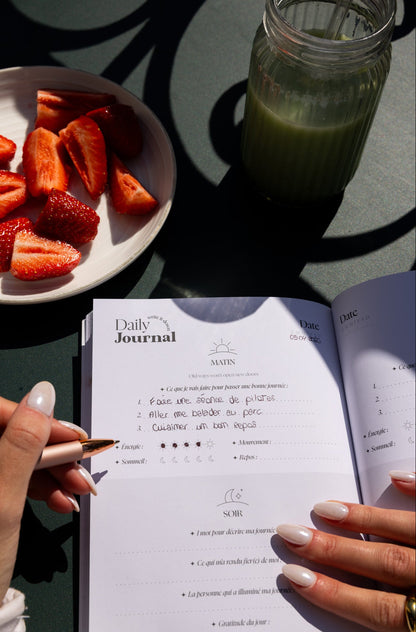 Daily
Journal
write it down
Date
MATIN
Old ways won't open new doors
Ce que je vais faire pour passer une bonne journée :
1. Faire une séance de pilates
2. Aller me balader au parc
3. Cuisiner un bon repas
Énergie : Mouvement :
Sommeil : Repos :
SOIR
1 mot pour décrire ma journée
Ce qui m'a rendu fier(e) de moi
La personne qui a illuminé ma journée
Gratitude du jour :
Date
Ce que
1.
2.
3.
Énergie
Sommeil